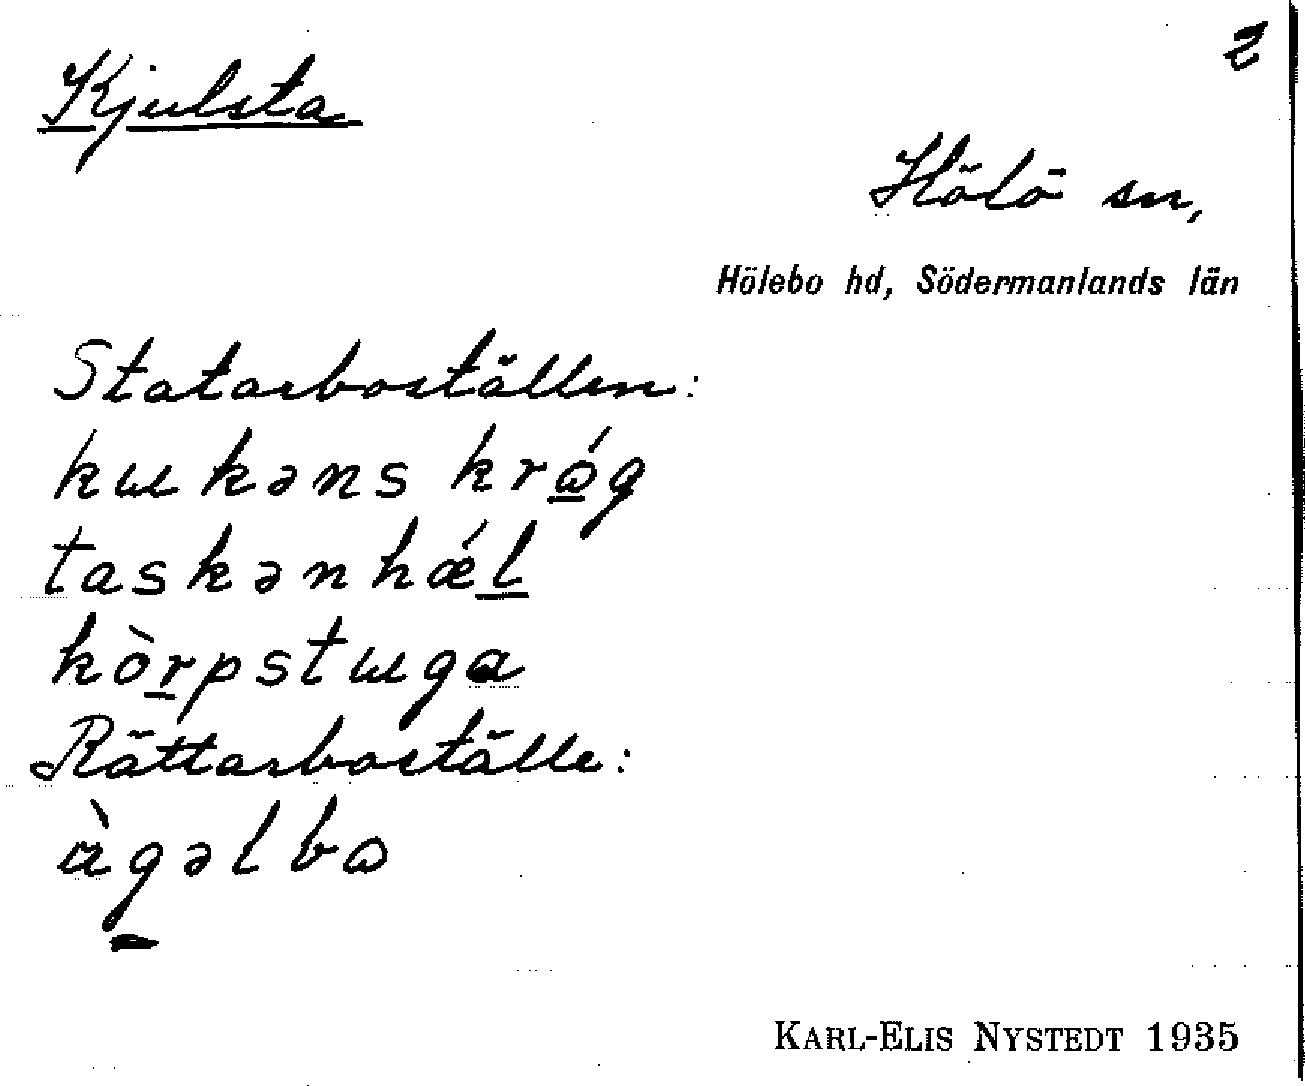 2
Kjulsta
Hölö sn,
Hölebo hd, Södermanlands län
Statarboställen:
kɯkəns krǫ́g
taskənhǽl̲
kòr̲pstɯga
Rättarboställe:
àg̲əlbꞷ
KARL-ELIS NYSTEDT 1935